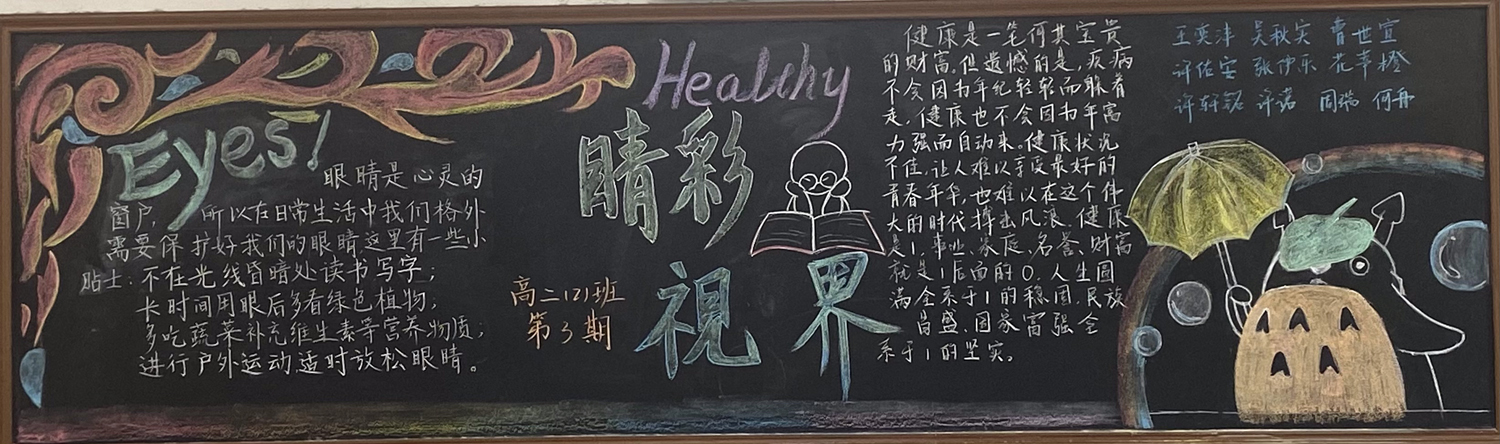 Eyes!
眼睛是心灵的
窗户，所以在日常生活中我们格外
需要保护好我们的眼睛。这里有一些小
贴士：不在光线昏暗处读书写字；
长时间用眼后多看绿色植物；
多吃蔬菜补充维生素等营养物质；
进行户外运动，适时放松眼睛。
Healthy
睛彩
视界
高二(2)班
第3期
健康是一笔何其宝贵
的财富。但遗憾的是，疾病
不会因为年纪轻轻而躲着
走，健康也不会因为年富
力强而自动来。健康状况
不佳，让人难以享受最好的
青春年华，也难以在这个伟
大的时代搏击风浪。健康
是1，事业、家庭、名誉、财富
就是1后面的0，人生圆
满全系于1的稳固，民族
昌盛、国家富强全
系于1的坚实。
王奕沣 吴秋实 曹世宣
许佑安 张伊乐
许轩铭 许诺 周瑞 何丹